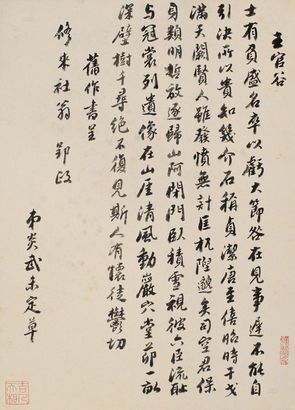 王官谷
士有負盛名卒以虧大節咎在見事遲不能自
引決所以貴知幾介石稱貞潔唐至僖昭時干戈
滿天闕賢人雖發憤無計匡杌隉邈矣司空君保
身類明哲放逐歸山阿閉門臥積雪視彼六臣流恥
与冠裳列遺像在山崖清風動巖穴堂茆一畝
深壁樹千尋絕不復見斯人有懷徒鬱切
舊作書呈
修來社翁 郢政
弟炎武未定草